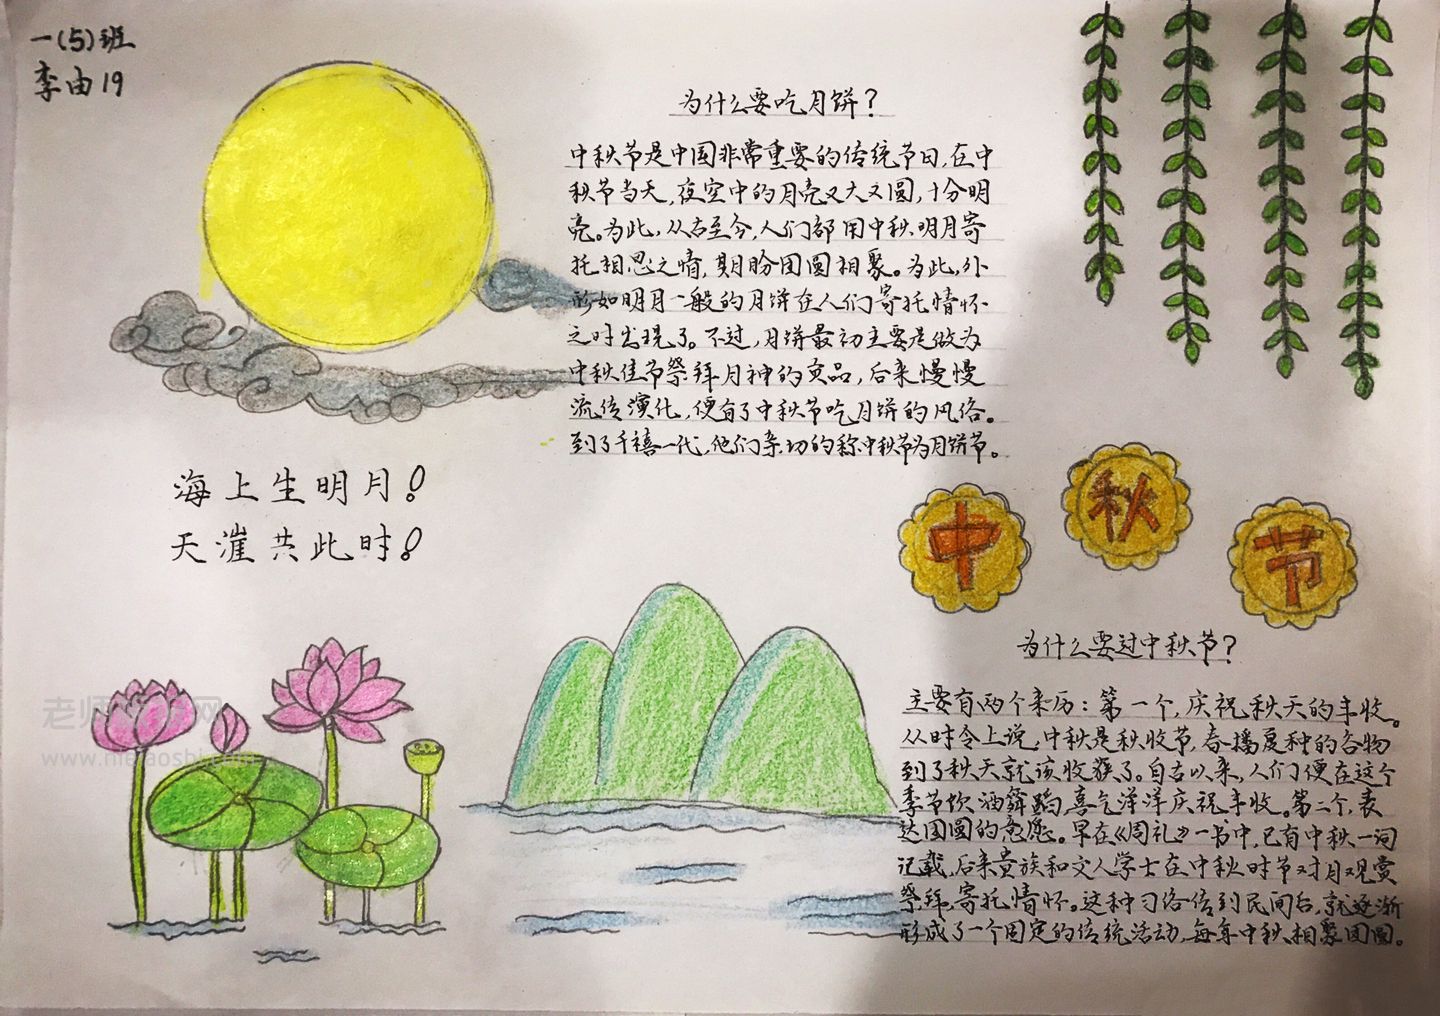 一(5)班
李由19
为什么要吃月饼?
中秋节是中国非常重要的传统节日,在中
秋节当天,夜空中的月亮又大又圆,十分明
亮。为此,从古至今,人们部用中秋明月寄
托相思之情,期盼团圆相聚。为此,外
形如明月一般的月饼在人们寄托情怀
之时出现了。不过,月饼最初主要是做为
中秋佳节祭拜月神的贡品,后来慢慢
流传演化,便有了中秋节吃月饼的风俗。
到了千禧一代,他们亲切的称中秋节为月饼节。
海上生明月!
天涯共此时!
中秋节
为什么要过中秋节?
主要有两个来历:第一个,庆祝秋天的丰收。
从时令上说,中秋是秋收节,春播夏种的谷物
到了秋天就该收获了。自古以来,人们便在这个
季节饮酒舞蹈,喜气洋洋庆祝丰收。第二个,表
达团圆的意愿。早在《周礼》一书中,已有中秋一词
记载,后来贵族和文人学士在中秋时节对月观赏
祭拜,寄托情怀。这种习俗传到民间后,就逐渐
形成了一个固定的传统活动,每年中秋相聚团圆。